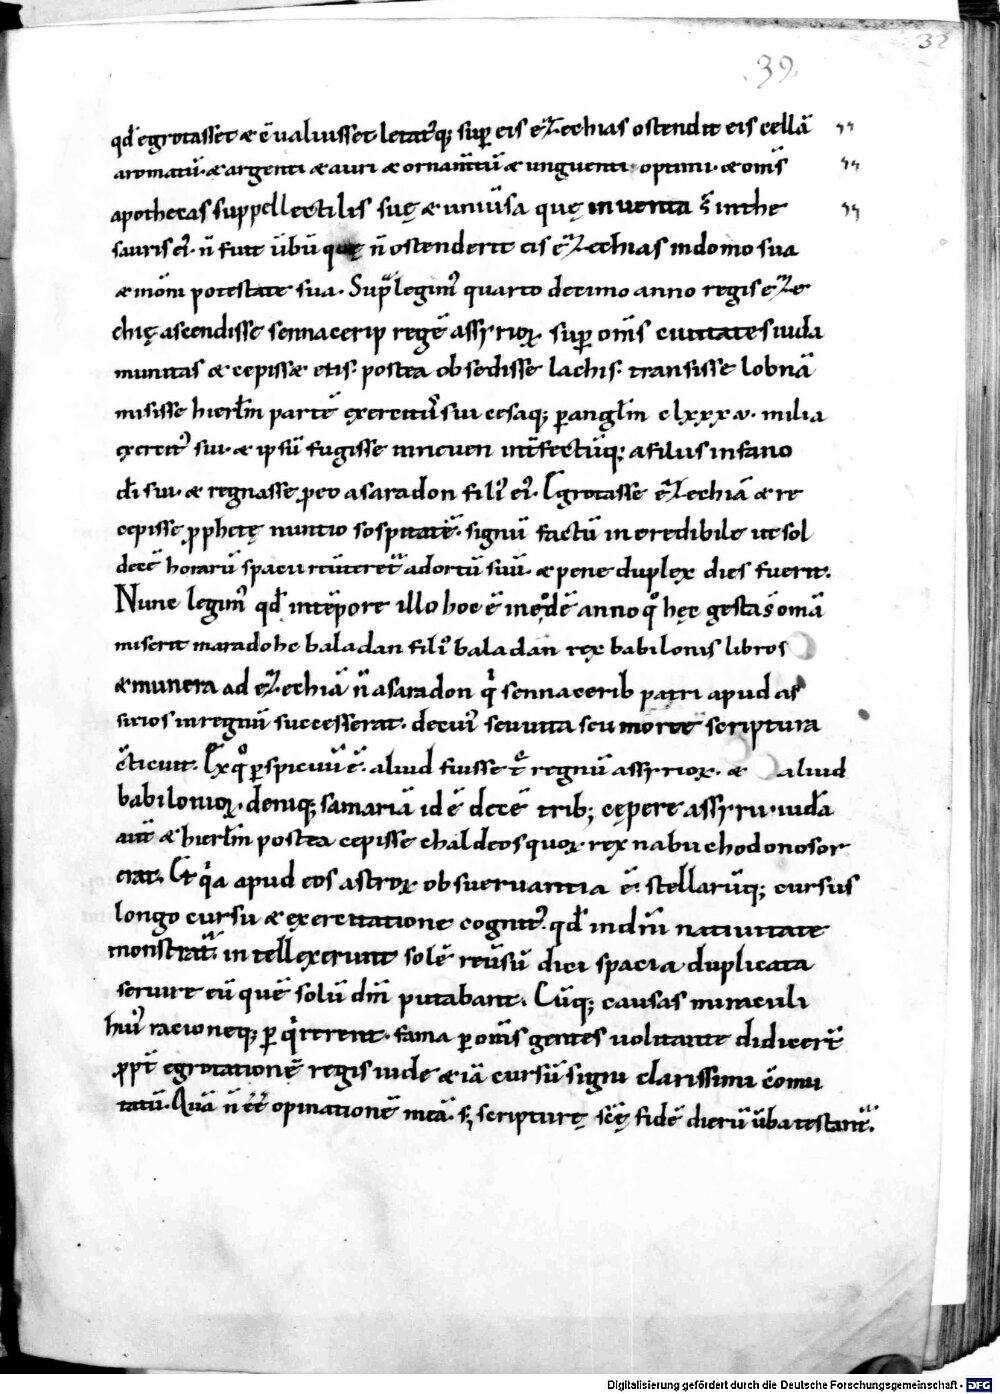 32
39.
qđ egrotasset & c̄ualuisset letat'q; sup eis ezechias ostendit eis cellā
aromatū. & argenti & auri & ornam̄tū & unguenti optimi. & om̄s
apothecas suppellectilis suę & uniūsa quę inuenta s̄ inthe
sauris ei'. n̄ fuit ūbū quę n̄ ostenderit eis ezechias indomo sua
& inōni potestate sua. Sup legim' quarto decimo anno regis eze
chię ascendisse sennacerip regē assyrioꝝ sup om̄s ciuitates iuda
munitas & cepisse eas. postea obsedisse lachis. transisse lobnā
misisse hierlm̄ partē exercitus sui cesaq; p anglm̄ clxxxv. milia
exercit' sui. & ipsū fugisse inneuen int̄fectūq; afiliis infano
đi sui. & regnasse p eo asaradon fili' ei'. Egrotasse ezechiā & re
cepisse pphetę nuntio sospitatē. signū factū incredibile ut sol
decē horarū spacii reūteret' adortū suū. & pene duplex dies fuerit.
Nunc legim' qđ intēpore illo hoc ē ineodē anno quo hęc gesta s̄ omā
miserit maradohc baladan fili' baladan rex babilonis libros
& munera ad ezechiā n̄ asaradon qi sennacerib patri apud as
sirios inregnū successerat. decui' seu uita seu morte scriptura
c̄ticuit. Ex quo pspicuū ē. aliud fuisse t̄ regnū assyrioꝝ. & aliud
babilonioꝝ. deniq; samariā id ē decē trib; cępere assyrii. iudā
aut̄ & hierlm̄ postea cepisse chaldeos quoꝝ rex nabuchodonosor
erat. Et qa apud eos astroꝝ obsueruantia ē. stellarūq; cursus
longo cursu & exercitatione cognit'. qđ indn̄i natiuitate
monstrat'. intellexerunt solē reūsū diei spacia duplicata
seruire eū quē solū dm̄ putabant. Cūq; causas miraculi
hui' racioneq; p qrerent. fama p om̄s gentes uolitante didicert̄
ppt̄ egrotationē regis iude & iā cursū signi clarissimi c̄omu
tatū. Quā n̄ ēē opinationē meā. s; scripturę scę fidē dierū ūba testant'.